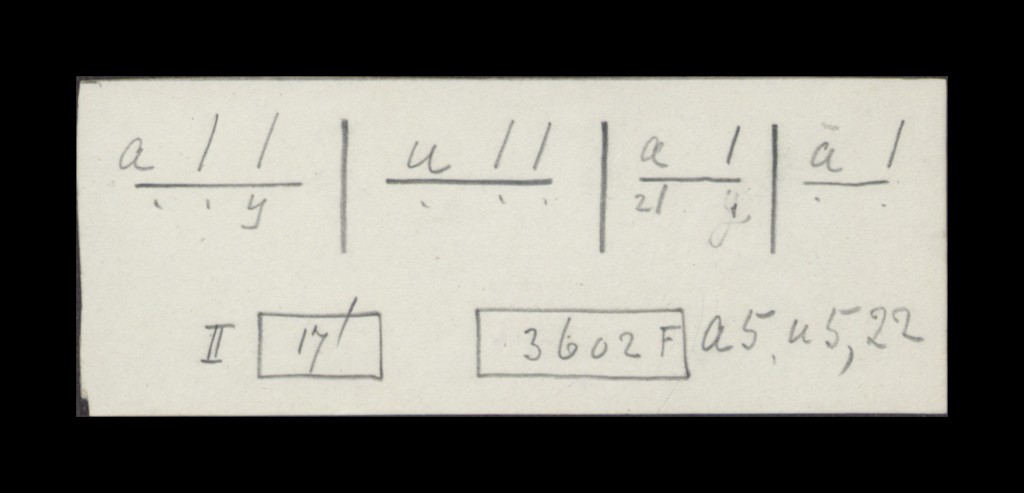 a / / | u / / | a / | ā /
. . y | . . . | 21 y | . .
II 17/ 3602 F a5, u5,22